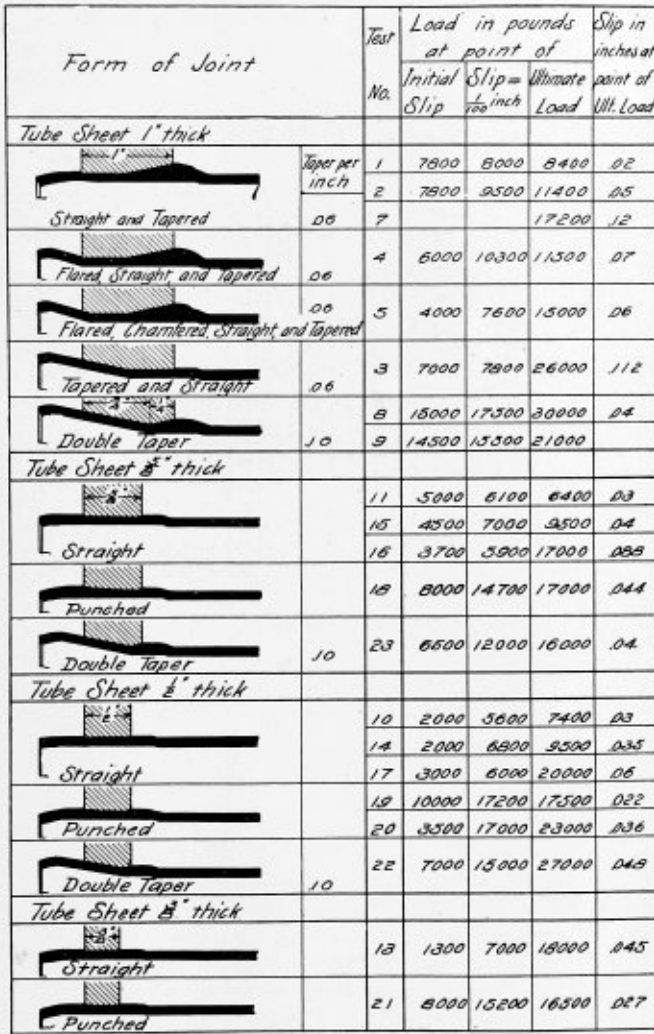 Form of Joint
Test No.
Load in pounds at point of
Initial Slip
Slip = 1/100 inch
Ultimate Load
Slip in inches at point of Ult. Load
Tube Sheet 1" thick
1"
Taper per inch
1 7800 8000 8400 .02
2 7800 9500 11400 .05
Straight and Tapered .06 7 17200 .12
Flared, Straight and Tapered .06 4 6000 10300 11500 .07
Flared, Chamfered, Straight, and Tapered .06 5 4000 7600 15000 .06
Tapered and Straight .06 3 7000 7800 26000 .112
8 15000 17500 30000 .04
Double Taper .10 9 14500 15500 21000
Tube Sheet 5/8" thick
5/8"
11 5000 6100 6400 .03
15 4500 7000 9500 .04
Straight 16 3700 5900 17000 .088
Punched 18 8000 14700 17000 .044
Double Taper .10 23 6500 12000 16000 .04
Tube Sheet 1/2" thick
1/2"
10 2000 5600 7400 .03
14 2000 6800 9500 .035
Straight 17 3000 6000 20000 .06
19 10000 17200 17500 .022
Punched 20 3500 17000 23000 .036
Double Taper .10 22 7000 15000 27000 .048
Tube Sheet 3/8" thick
3/8"
Straight 13 1300 7000 18000 .045
Punched 21 8000 15200 16500 .027